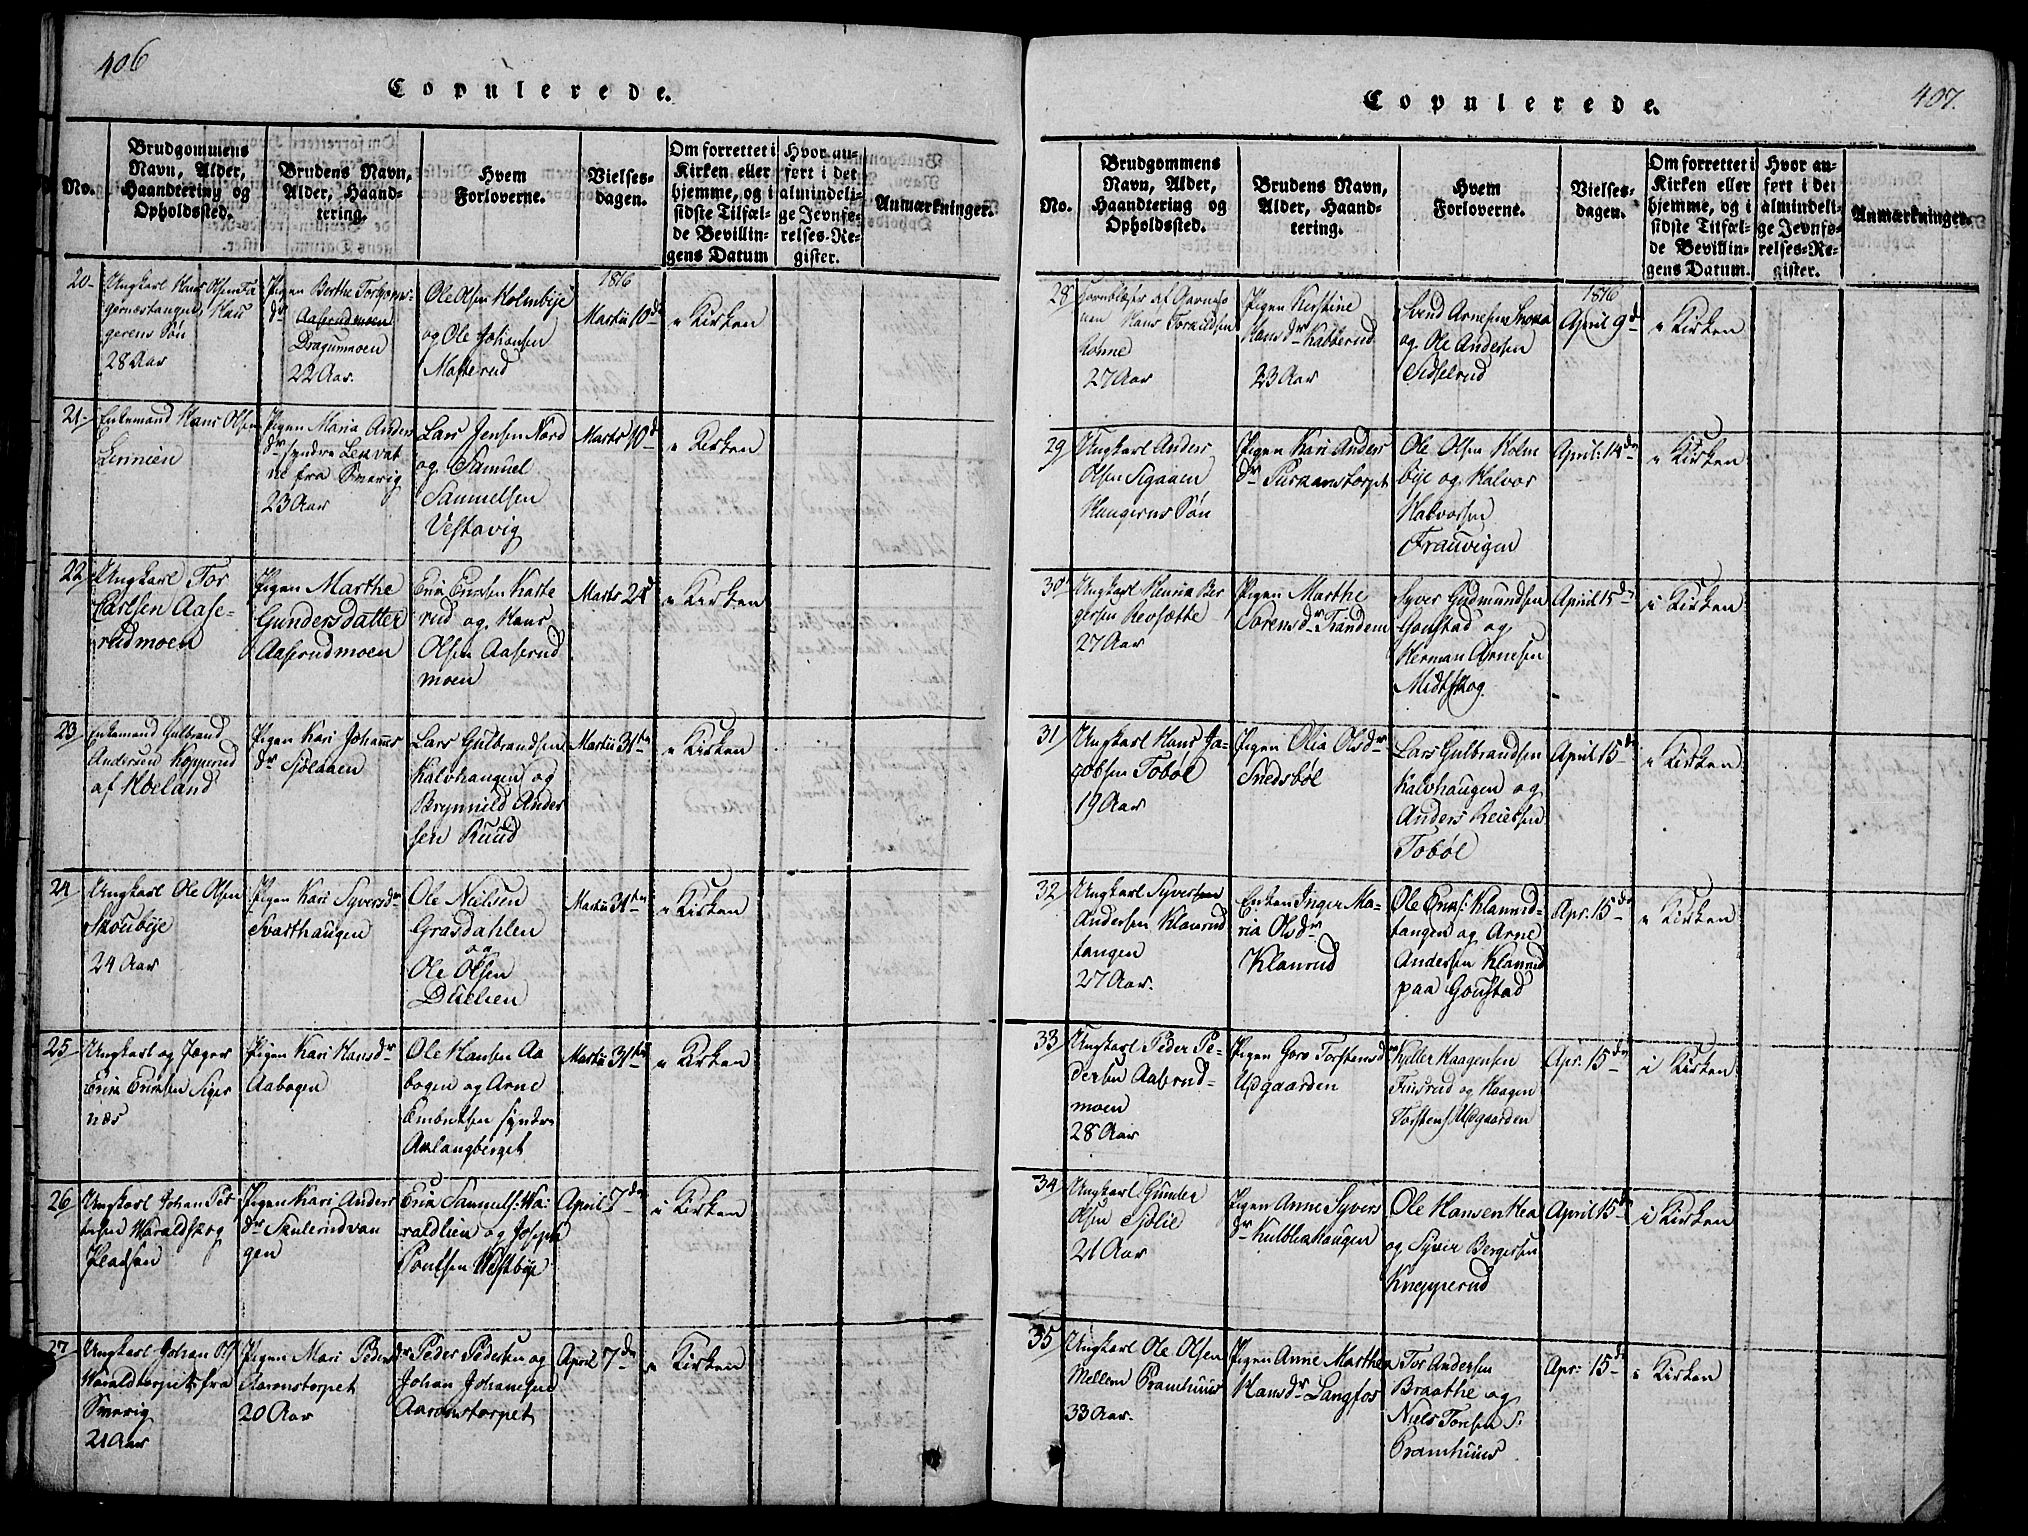 406
Copulerede.
No.
Brudgommens
Navn, Alder,
Haandtering og
Opholdssted.
Brudens Navn,
Alder, Haand-
tering.
Hvem
Forloverne.
Vielses-
dagen.
Om forrettet i
Kirken eller
hjemme, og i
sidste Tilfæl-
de Bevillin-
gens Datum
Hvor an-
ført i det
almindeli-
ge Jevnfø-
relses-Re-
gister.
Anmærkninger.
20
Ungkarl Hans Olsen
Søn
28 Aar
Pigen Berthe
dr Aaserudmoen
Dragunmoen
22 Aar.
Ole Olsen Holmbÿe
og Ole Johansen
Masterud
1816
Martii 10d
i Kirken
21
Enkemand Hans Olsen
Pigen Maria Anders
dr søndre
fra
23 Aar
Lars Jensen Nord
og Samuel
Samuelsen
Vestavig
Marts 10d
i Kirken
22
Ungkarl Tor
Carlsen Aase-
rudmoen
Pigen Marthe
Gundersdatter
Aaserudmoen
og Hans
Olsen Aaserud
moen
Marts 24d
i Kirken
23
Enkemand Gulbrand
Andersen Kopperud
af Høland
Pigen Kari Johanns
dr Siølaaen
Lars Gulbrandsen
Kalvhaugen og
Brynnild Ander
sen Ruud
Martii 31te
i Kirken
24
Ungkarl Ole Olsen
Skoubÿe
24 Aar
Pigen Kari Syversdr
Svarthaugen
Ole Nielsen
Grasdahlen
og
Ole Olsen
Martii 31te
i Kirken
25
Ungkarl og Jæger
Erik Eriksen Siger
næs
Pigen Kari Hansdr
Aabogen
Ole Hansen Aa
bogen og Arne
Embretsen syndre
Aalangberget
Martii 31te
i Kirken
26
Ungkarl Johan Pet
tersen Waraldskog
Pigen Kari Anders
dr Skulerudvan
gen
Erik Samuels: Wa
raldlien og Joseph
Poulsen Westbÿe
April 7de
i Kirken
27
Ungkarl Johan
Waraldtorpet fra
21 Aar
Pigen Mari Pedersdr
Aaronstorpet
20 Aar
Peder Pedersen og
Johan Johansen
Aaronstorpet
April 7de
i Kirken
407.
Copulerede.
No.
Brudgommens
Navn, Alder,
Haandtering og
Opholdssted.
Brudens Navn,
Alder, Haand-
tering.
Hvem
Forloverne.
Vielses-
dagen.
Om forrettet i
Kirken eller
hjemme, og i
sidste Tilfæl-
de Bevillin-
gens Datum.
Hvor an-
ført i det
almindeli-
ge Jevnfø-
relses-Re-
gister.
Anmærkninger.
28
Hornblæser af
Hans
27 Aar
Pigen Kerstine
Hansdr Kabberud
23 Aar
Svend Arnesen
og Ole Andersen
Sidselrud
1816
April 9d
i Kirken
29
Ungkarl Anders
Olsen Sigaaen
Haugerns Søn
Pigen Kari Anders
dr
Ole Olsen Holm
bÿe og Halvor
Halvorsen
Frauvigen
April: 14de
i Kirken
30
Ungkarl Henrik Ber
gersen Revsætte
27 Aar
Pigen Marthe
Sorensdr Trandem
Syver Gudmundsen
Gonstad og
Herman Arnesen
Midtskog.
April 15de
i Kirken
31
Ungkarl Hans Ja-
cobsen Tobøl
19 Aar
Pigen Olia Olsdr
Snedsbøl
Lars Gulbrandsen
Kalvhaugen og
Anders Reiersen
Tobøl
April 15de
i Kirken
32
Ungkarl Syver
Andersen Klanrud
tangen
27 Aar.
Enken Inger Ma-
ria Olsdr
Klanrud
Ole Eriks: Klanrud-
tangen og Arne
Andersen Klanrud
paa Gonstad
Apr: 15de
i Kirken
33
Ungkarl Peder Pe-
dersen Aaserud-
moen
28 Aar
Pigen Goro Torstensdr
Upgaarden
Haagensen
Finsrud og Haagen
Torstens: Upgaarden
Apr: 15de
i Kirken
34
Ungkarl Gunder
Olsen Siølie
21 Aar
Pigen Anne Syvers
dr Kulbliahaugen
Ole Hansen Hea
og Syver Bergersen
Knapperud
April 15de
i Kirken
35
Ungkarl Ole Olsen
Mellem Bramhuus
33 Aar.
Pigen Anne Marthea
Hansdr Langfos
Tor Andersen
Braathe og
Niels Toresen S:
Bramhuus
Apr: 15de
i Kirken